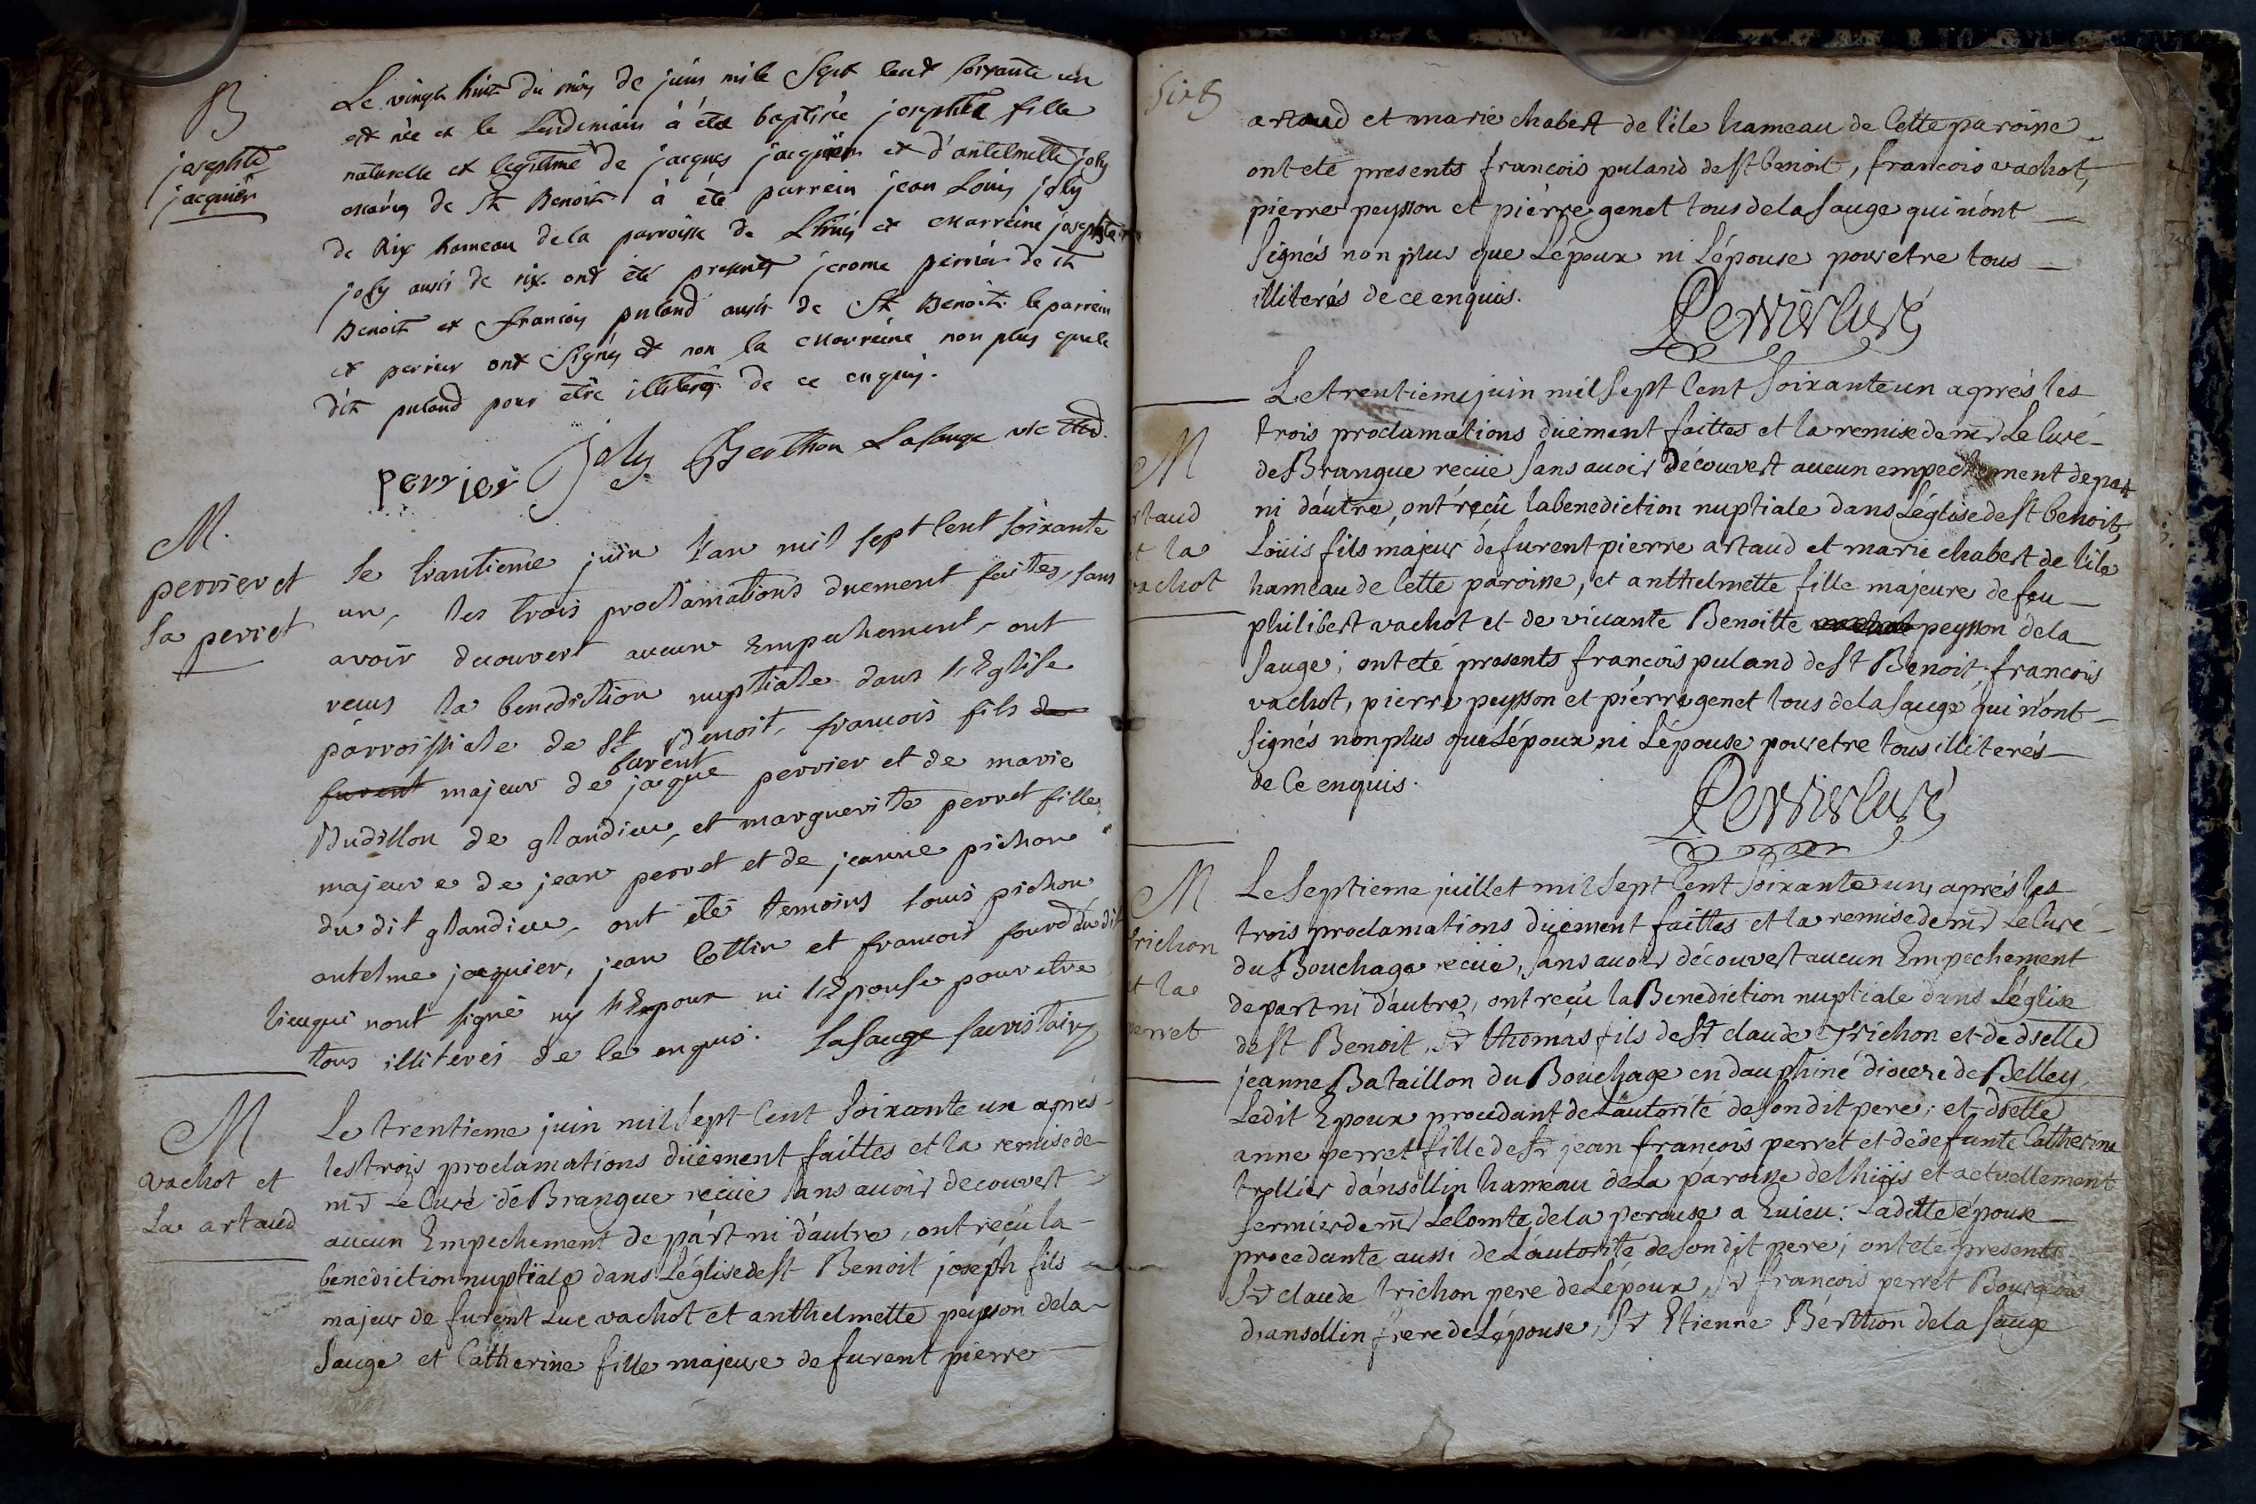 B
josephte
jacquier
Le vingt huit du mois de juin mile Sept Cent soixante un
est née et le Lendemain à été baptisée josephte fille
naturelle et legitime de jacques jacquier et d'antelmette joly
mariés de St Benoit à été parrein jean Louis joly
de Rix hameau de la parroisse de Lhuis et marreine josephte
joly aussi de rix. ont été presents jerome perrier de st
Benoit et francois puland aussi de St Benoit. le parrein
et perrier ont signés et non la marreine non plus que le
dit puland pour être illiterés de ce enquis.
perrier Joly Berthon Lasauge vic
M.
perrier et
la perret
le trantieme juin l'an mil sept cent soixante
un, les trois proclamations duement faites, sans
avoir decouvert aucun Empechement, ont
recus la benediction nuptiale dans l'Eglise
parroissiale de St Benoit, francois fils de
furent majeur de furent jaque perrier et de marie
Budillon de glandieu, et marguerite perret fille
majeure de jean perret et de jeanne pichon
du dit glandieu, ont été temoins louis pichon
antelme jacquier, jean Cottin et francois du dit
lieu qui n'ont signé ny l'Epoux ni l'Epouse pour etre
tous illiterés de ce enquis. Lasauge
M
vachot et
La artaud
Le trentieme juin mil Sept Cent Soixante un aprés
les trois proclamations düement faittes et la remise de
mr Le Curé de Brangue recüe sans avoir decouvert
aucun Empechement de part ni d'autre, ont reçu la
benediction nuptiale dans L'église de St Benoit joseph fils
majeur de furent Luc vachot et anthelmette peysson de la
Sauge et Catherine fille majeure de furent pierre
artaud et marie chabert de l'ile hameau de Cette paroisse
ont eté presents francois puland de St benoit, francois vachot,
pierre peysson et pierre genet tous de la Sauge qui n'ont
Signés non plus que L'époux ni L'épouse pour etre tous
illiterés de ce enquis.
Perrier Curé
M
rtaud
et la
vachot
Le trentieme juin mil Sept Cent Soixante un aprés les
trois proclamations düement faittes et la remise de mr Le Curé
de Brangue recue sans avoir découvert aucun empechement de part
ni d'autre, ont reçû la benediction nuptiale dans L'église de St benoit,
Loüis fils majeur de furent pierre artaud et marie chabert de l'ile
hameau de Cette paroisse, et anthelmette fille majeure de feu
philibert vachot et de vivante Benoitte vachot peysson de la
Sauge; ont eté presents francois puland de St Benoit, francois
vachot, pierre peysson et pierre genet tous de la Sauge qui n'ont
Signés non plus que L'époux ni L'épouse pour etre tous illiterés
de Ce enquis.
Perrier Curé
M
trichon
et la
perret
Le Septieme juillet mil Sept Cent Soixante un, aprés les
trois proclamations düement faittes et la remise de mr Le Curé
du Bouchage recüe, sans avoir découvert aucun Empechement
de part ni d'autre, ont reçu la Benediction nuptiale dans L'église
de St Benoit, Sr thomas fils de Sr claude Trichon et de dselle
jeanne Bataillon du Bouchage en dauphiné diocese de Belley
Ledit Epoux procedant de L'autorité de son dit pere; et dselle
anne perret fille de Sr jean françois perret et de defunte Catherine
trollier d'ansollin hameau de La paroisse de Lhüis et actuellement
fermier de mr Le Comte de la perouse a Luieu: La ditte épouse
procedante aussi de L'autorité de son dit pere; ont eté presents
Sr claude trichon pere de L'époux, Sr françois perret Bourgois
d'ansollin frere de L'épouse, Sr Etienne Berthon de la Sauge